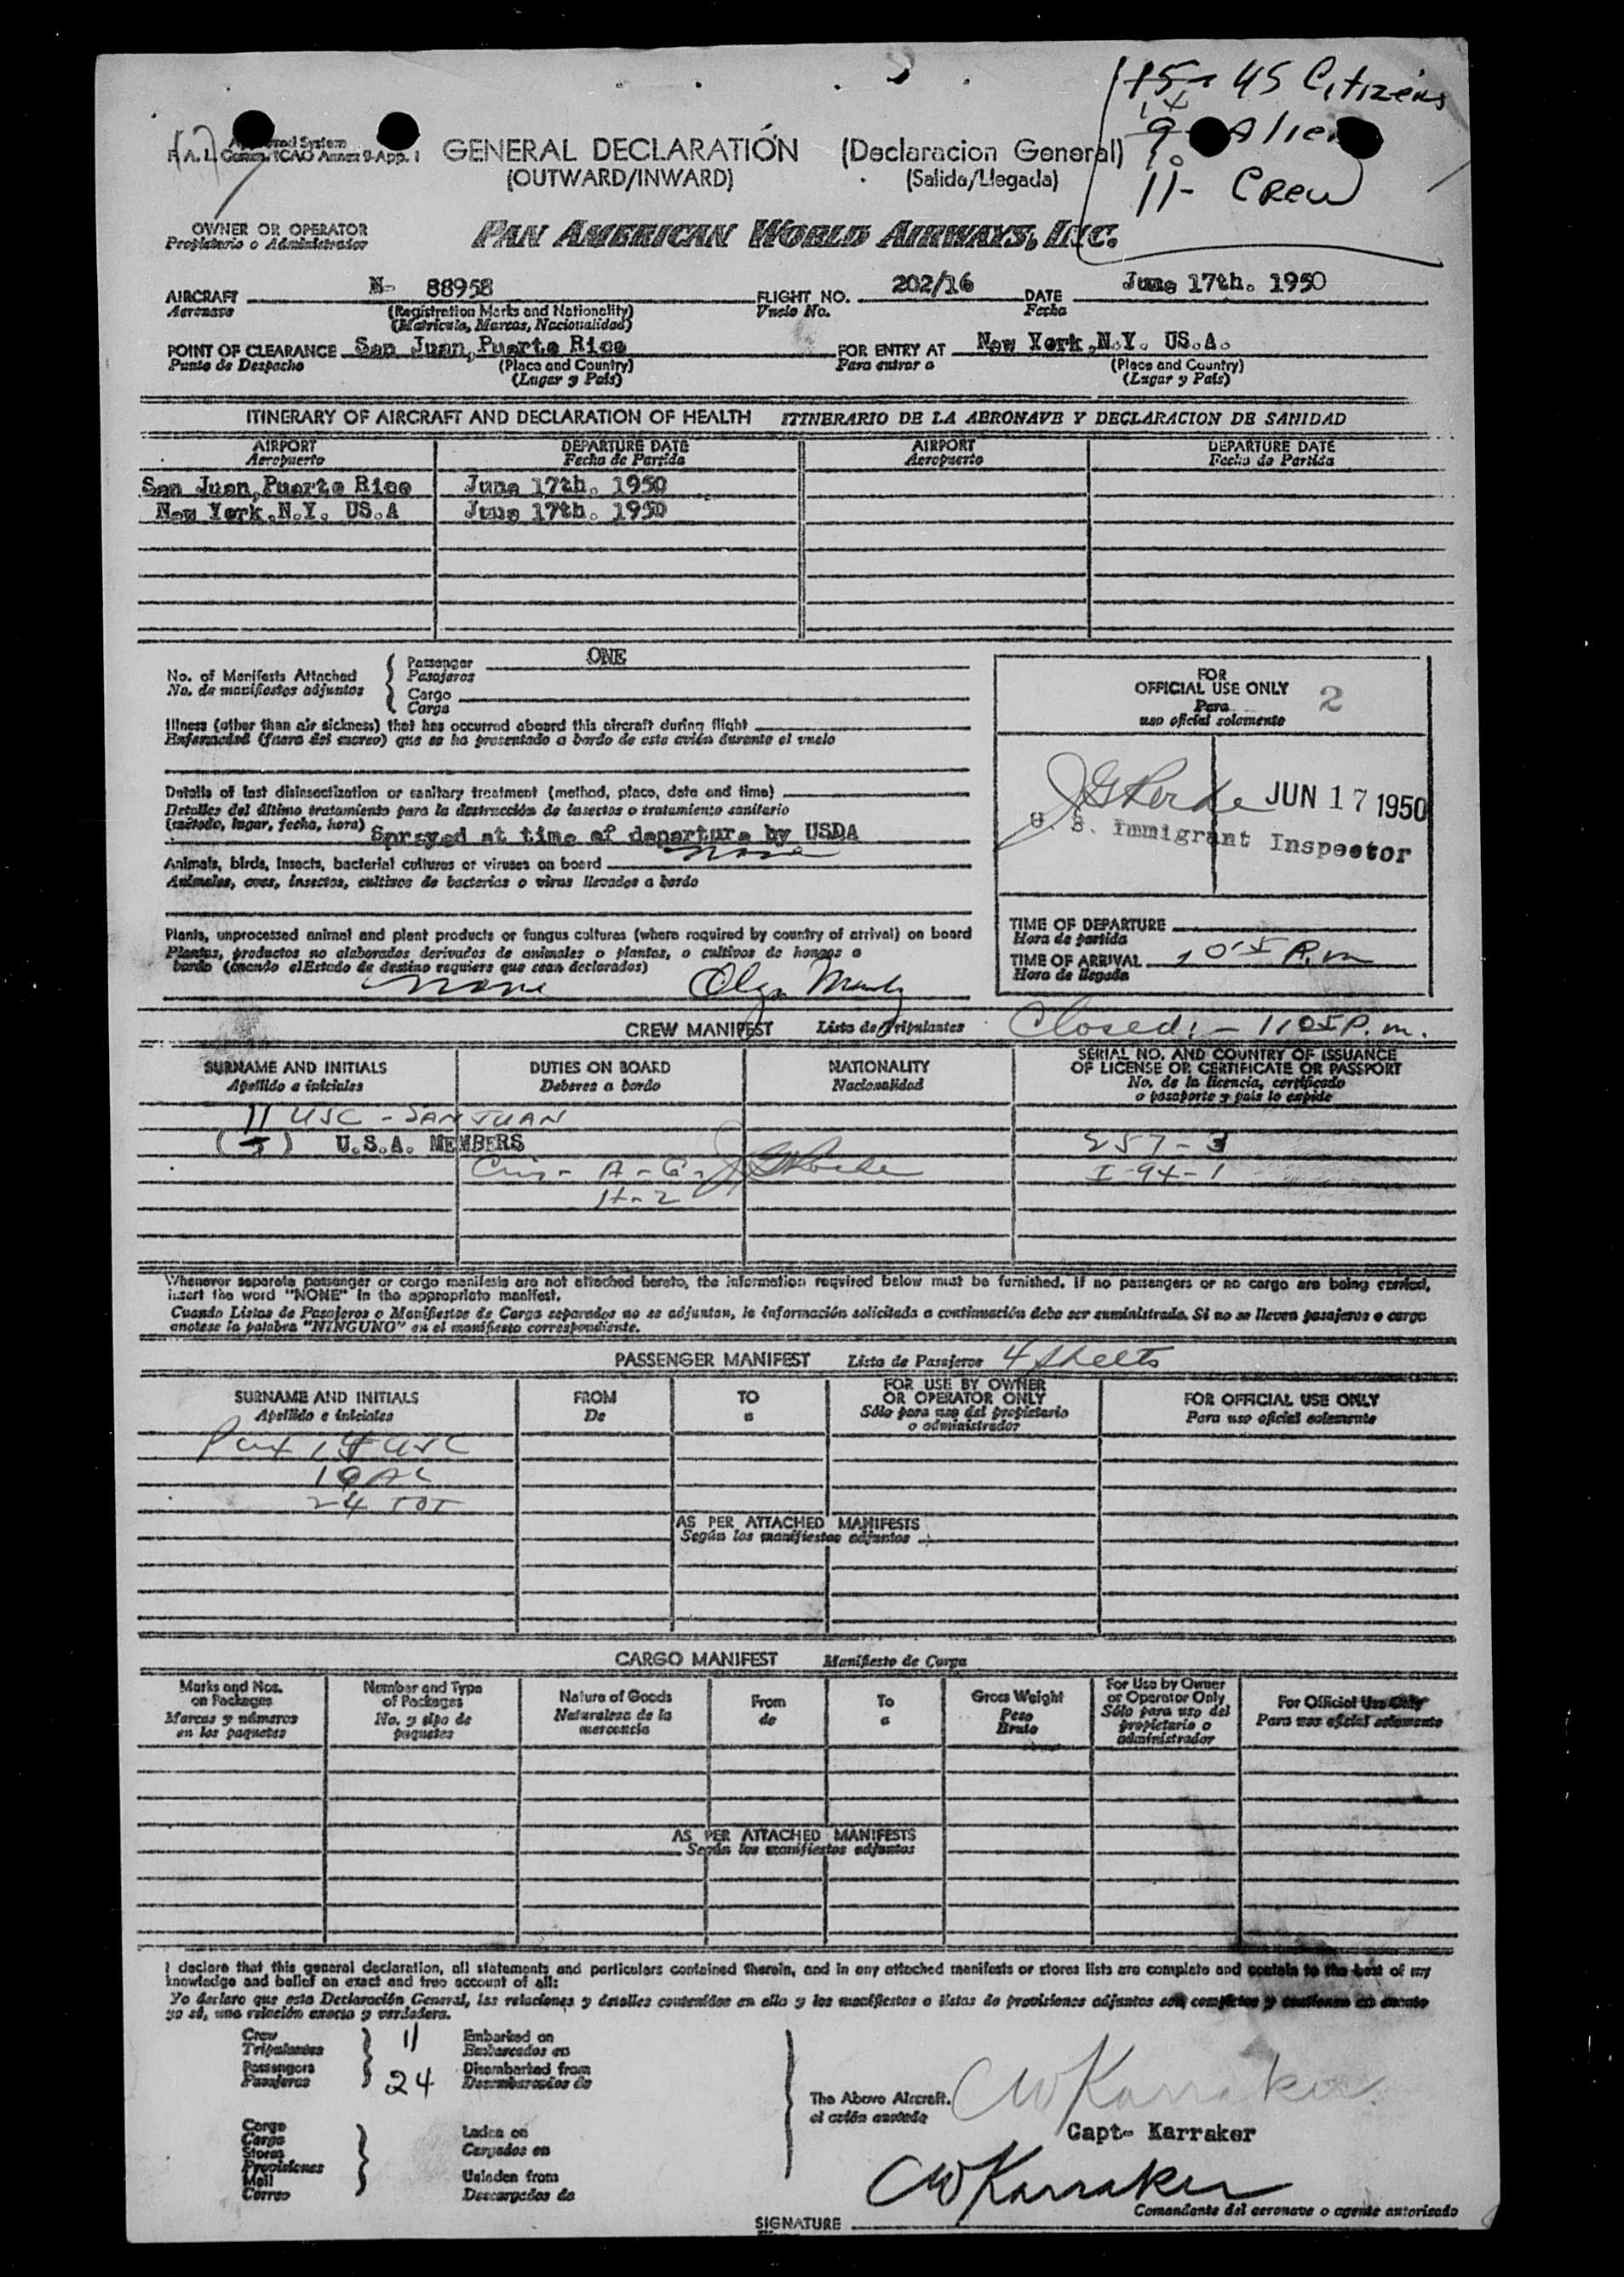 45 Citizens
11- Crew
GENERAL DECLARATION (Declaracion General)
(OUTWARD/INWARD) (Salida/Llegada)
OWNER OR OPERATOR
Propietario o Administrador
PAN AMERICAN WORLD AIRWAYS, INC.
AIRCRAFT N- 88958 FLIGHT NO. 202/16 DATE June 17th. 1950
Aeronave (Registration Marks and Nationality) Vuelo No. Fecha
(Matricula, Marcas, Nacionalidad)
POINT OF CLEARANCE San Juan, Puerto Rico FOR ENTRY AT New York, N.Y. US.A.
Punto de Despacho (Place and Country) Para entrar a (Place and Country)
(Lugar y País) (Lugar y País)
ITINERARY OF AIRCRAFT AND DECLARATION OF HEALTH ITINERARIO DE LA AERONAVE Y DECLARACION DE SANIDAD
AIRPORT DEPARTURE DATE AIRPORT DEPARTURE DATE
Aeropuerto Fecha de Partida Aeropuerto Fecha de Partida
San Juan, Puerto Rico June 17th. 1950
New York, N.Y. US.A June 17th. 1950
No. of Manifests Attached
No. de manifiestos adjuntos
Passenger ONE
Pasajeros
Cargo
Carga
FOR
OFFICIAL USE ONLY 2
Para
uso oficial solamente
Illness (other than air sickness) that has occurred aboard this aircraft during flight
Enfermedad (fuera del mareo) que se ha presentado a bordo de este avión durante el vuelo
Details of last disinsectization or sanitary treatment (method, place, date and time)
Detalles del último tratamiento para la destrucción de insectos o tratamiento sanitario
(método, lugar, fecha, hora) Sprayed at time of departure by USDA
JUN 17 1950
U. S. Immigrant Inspector
Animals, birds, insects, bacterial cultures or viruses on board none
Animales, aves, insectos, cultivos de bacterias o virus llevados a bordo
Plants, unprocessed animal and plant products or fungus cultures (where required by country of arrival) on board
Plantas, productos no elaborados derivados de animales o plantas, o cultivos de hongos a
bordo (cuando el Estado de destino requiere que sean declarados)
none Olga
TIME OF DEPARTURE
Hora de partida
TIME OF ARRIVAL P.m
Hora de llegada
CREW MANIFEST Lista de Tripulantes Closed: - 1105 P.m.
SURNAME AND INITIALS DUTIES ON BOARD NATIONALITY SERIAL NO. AND COUNTRY OF ISSUANCE
OF LICENSE OR CERTIFICATE OR PASSPORT
Apellido e iniciales Deberes a bordo Nacionalidad No. de la licencia, certificado
o pasaporte y país lo expide
11 USC - SAN JUAN
U.S.A. MEMBERS 257-3
I-94-1
Whenever separate passenger or cargo manifests are not attached hereto, the information required below must be furnished. If no passengers or no cargo are being carried,
insert the word "NONE" in the appropriate manifest.
Cuando Listas de Pasajeros o Manifiestos de Carga separados no se adjuntan, la información solicitada a continuación debe ser suministrada. Si no se lleven pasajeros o carga
anotese la palabra "NINGUNO" en el manifiesto correspondiente.
PASSENGER MANIFEST Lista de Pasajeros 4 sheets
SURNAME AND INITIALS FROM TO FOR USE BY OWNER
OR OPERATOR ONLY FOR OFFICIAL USE ONLY
Apellido e iniciales De a Sólo para uso del propietario
o administrador Para uso oficial solamente
24 TOT
AS PER ATTACHED MANIFESTS
Según los manifiestos adjuntos
CARGO MANIFEST Manifiesto de Carga
Marks and Nos.
on Packages
Marcas y números
en los paquetes
Number and Type
of Packages
No. y tipo de
paquetes
Nature of Goods
Naturaleza de la
mercancía
From
de
To
a
Gross Weight
Peso
Bruto
For Use by Owner
or Operator Only
Sólo para uso del
propietario o
administrador
For Official Use Only
Para uso oficial solamente
AS PER ATTACHED MANIFESTS
Según los manifiestos adjuntos
I declare that this general declaration, all statements and particulars contained therein, and in any attached manifests or stores lists are complete and contain to the best of my
knowledge and belief an exact and true account of all:
Yo declaro que esta Declaración General, las relaciones y detalles contenidos en ella y los manifiestos o listas de provisiones adjuntos son completos y contienen en cuanto
yo sé, una relación exacta y verdadera.
Crew 11 Embarked on
Tripulantes Embarcados en
Passengers 24 Disembarked from
Pasajeros Desembarcados de
The Above Aircraft. CW Karraker
el avión anotado
Capt- Karraker
Cargo
Carga
Stores
Provisiones
Mail
Correo
Laden on
Cargados en
Unladen from
Descargados de
CW Karraker
Comandante del aeronave o agente autorizado
SIGNATURE